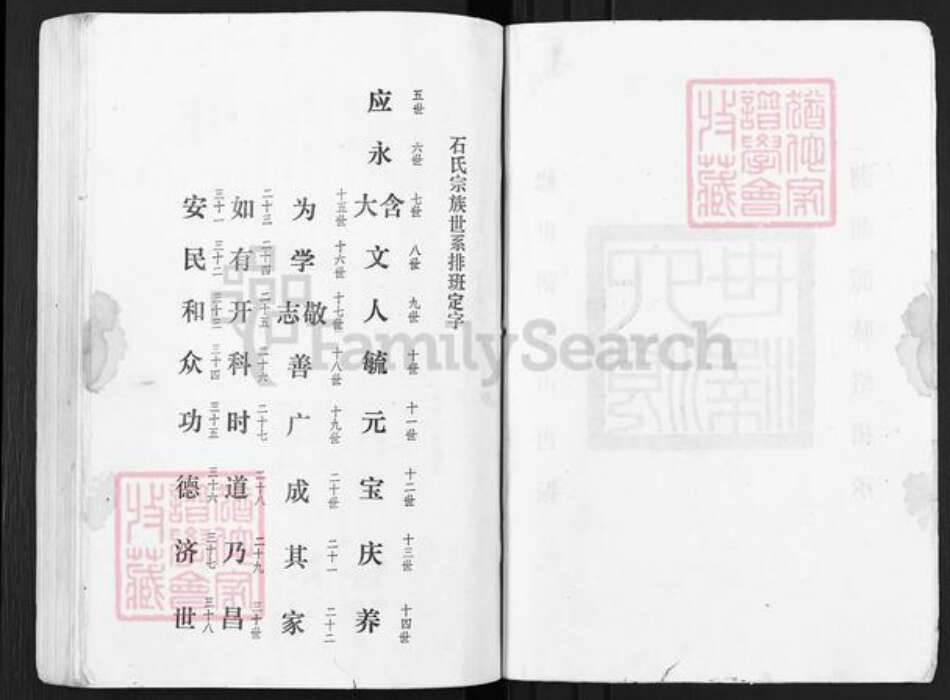 石氏宗族世系排班定字
五世 应
六世 永
七世 含大
八世 文
九世 人
十世 毓
十一世 元
十二世 宝
十三世 庆
十四世 养
十五世 为
十六世 学
十七世 敬志
十八世 善
十九世 广
二十世 成
二十一 其
二十二 家
二十三 如
二十四 有
二十五 开
二十六 科
二十七 时
二十八 道
二十九 乃
三十世 昌
三十一 安
三十二 民
三十三 和
三十四 众
三十五 功
三十六 德
三十七 济
三十八 世
FamilySearch
猶他家
譜學會
收藏
猶他家
譜學會
收藏